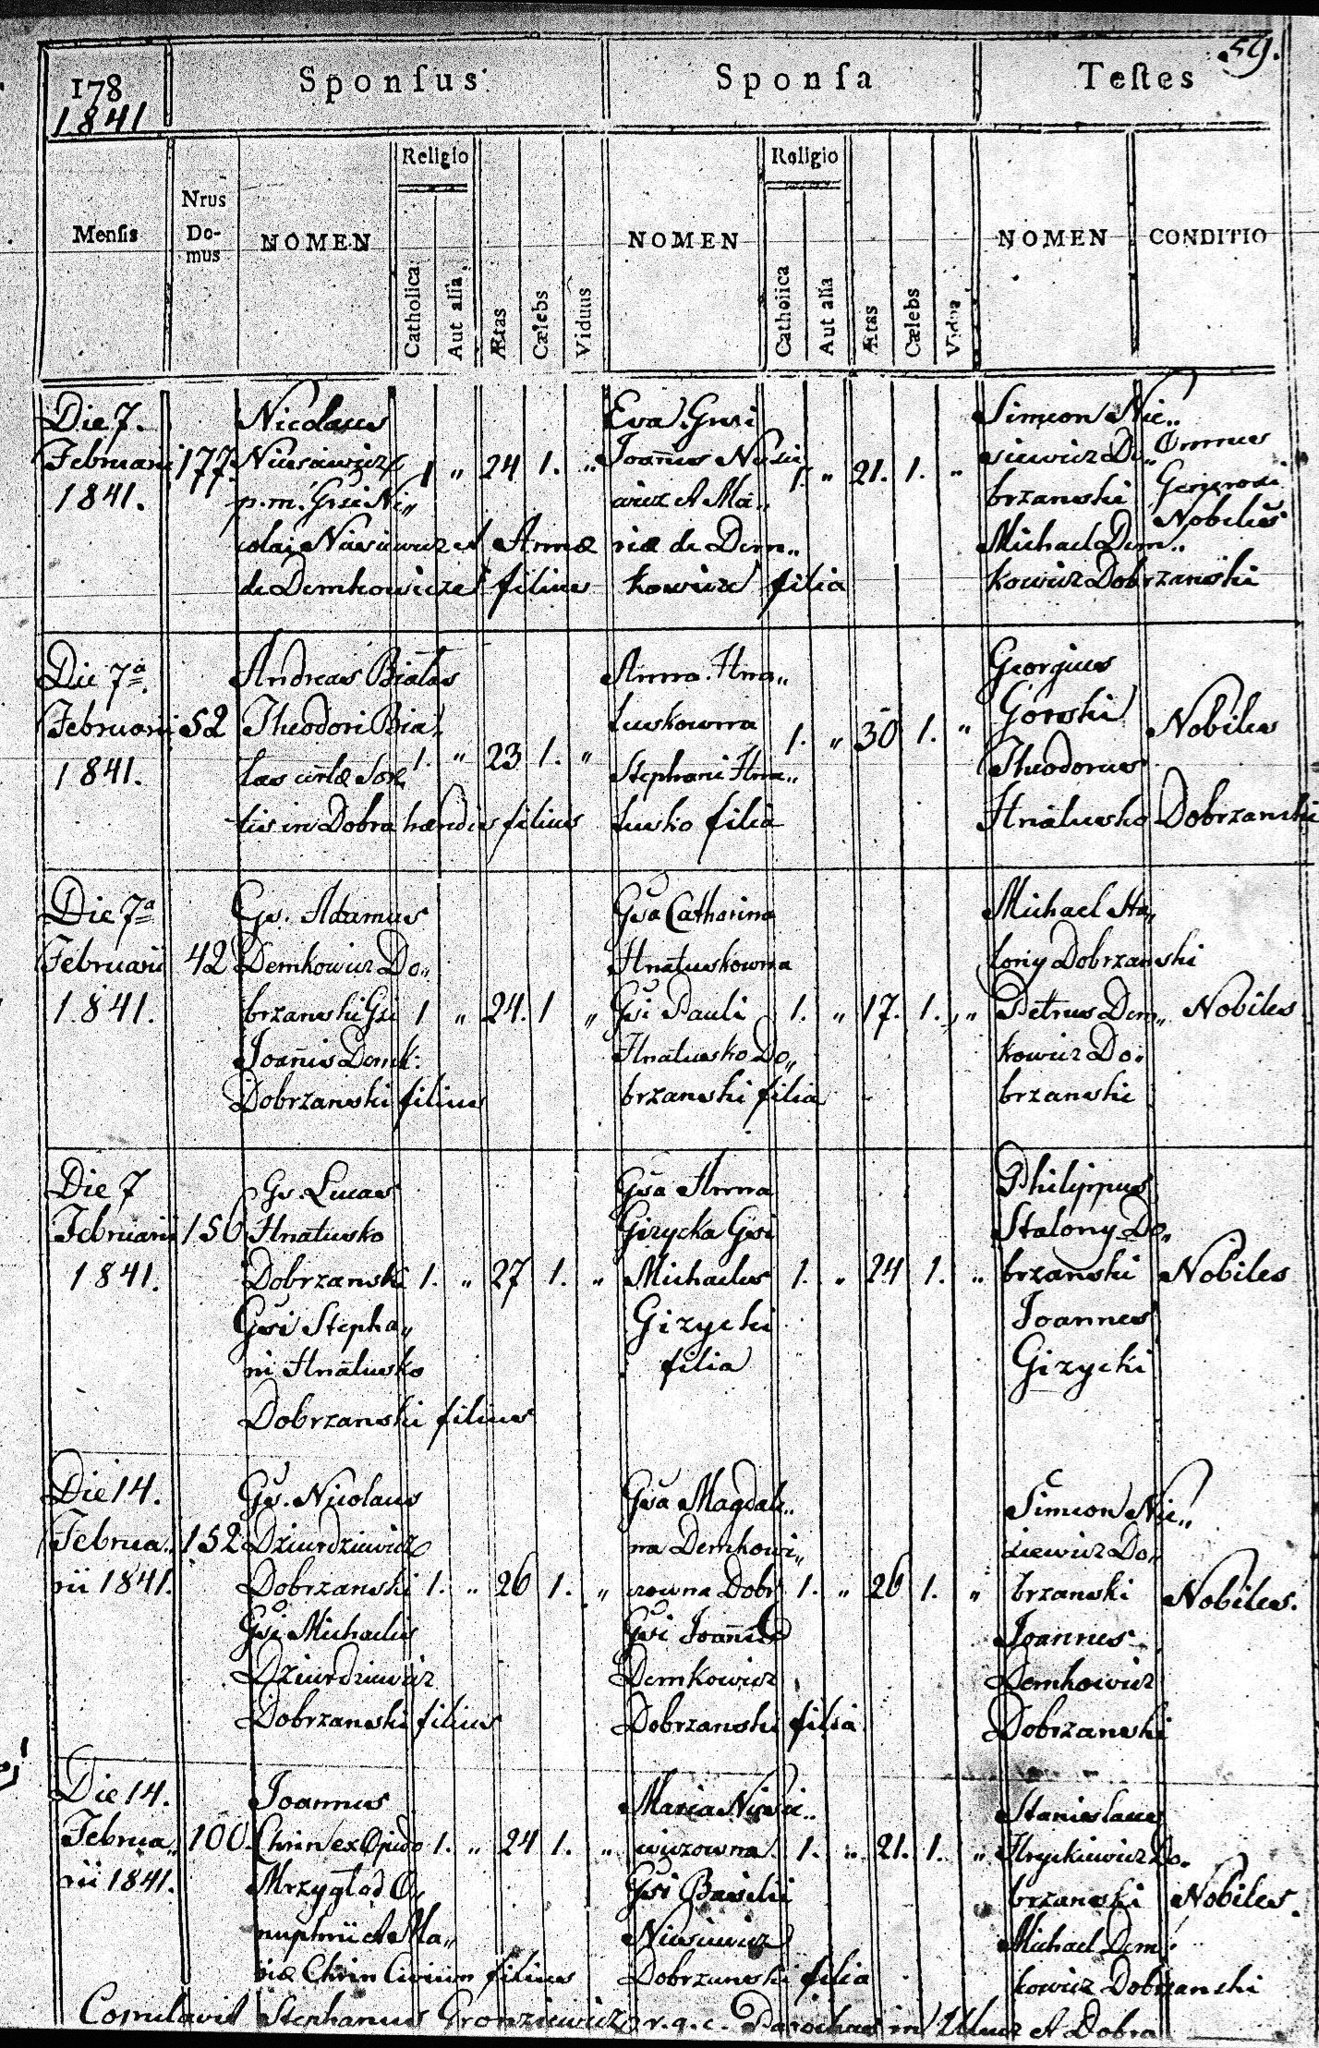 59.
178
1841
Sponſus
Sponſa
Teſtes
Menſis
Nrus
Do-
mus
NOMEN
Religio
Catholica
Aut alia
Ætas
Cælebs
Viduus
NOMEN
Religio
Catholica
Aut alia
Ætas
Cælebs
Vidua
NOMEN
CONDITIO
Die 7.
Februarii
1841.
177
Nicolaus
Niesiewicz
p.m. Gsi Ni„
colai Niesiewicz et Annæ
de Demkowicze filius
1 „ 24 1. „
Eva Gnsi
Joañis
wicz et Ma„
riæ de Dem„
kowicze filia
1. „ 21. 1. „
Simeon Nie„
siewicz Do„
brzanski
Michael Dem„
kowicz Dobrzanski
Omnes
Generosi
Nobiles
Die 7ª
Februarii
1841.
52
Andreas Białas
Theodori Bia„
łas
tis in Dobra hændis filius
1. „ 23 1. „
Anna Hna„
tuskowna
Stephani Hna„
tusko filia
1. „ 30 1. „
Georgius
Gorski
Theodorus
Hnatusko Dobrzanski
Nobiles
Die 7ª
Februarii
1841.
42
Gs. Adamus
Demkowicz Do„
brzanski Gsi
Joañis Demk:
Dobrzanski filius
1 „ 24. 1 „
Gsa Catharina
Hnatuskowna
Gsi Pauli
Hnatusko Do„
brzanski filia
1. „ 17. 1. „
Michael Sta„
lony Dobrzanski
Petrus Dem„
kowicz Do„
brzanski
Nobiles
Die 7
Februarii
1841.
156
Gs. Lucas
Hnatusko
Dobrzanski
Gsi Stepha„
ni Hnatusko
Dobrzanski filius
1. „ 27 1. „
Gsa Anna
Gizycka Gsi
Michaelis
Gizycki
filia
1. „ 24 1. „
Philippus
Stalony Do„
brzanski
Joannes
Gizycki
Nobiles
Die 14.
Februa„
rii 1841.
152
Gs. Nicolaus
Dziurdziewicz
Dobrzanski
Gsi Michaelis
Dziurdziewicz
Dobrzanski filius
1. „ 26 1. „
Gsa Magdale„
na Demkowi„
czowna Dobr
Gsi Joañis
Demkowicz
Dobrzanski filia
1. „ 26 1. „
Simeon Nie„
ziewicz Do„
brzanski
Joannes
Demkowicz
Dobrzanski
Nobiles.
Die 14.
Februa„
rii 1841.
100.
Joannes
Chrin ex Opido
Mrzygłod O„
nuphrii et Ma„
riæ Chrin Civium filius
1. „ 24 1. „
Maria Niesie„
wiczowna
Gsi Basilii
Niesiewicz
Dobrzanski filia
1. „ 21. 1. „
Stanislaus
Hryckiewicz Do„
brzanski
Michael Dem„
kowicz Dobrzanski
Nobiles.
Copulavit Stephanus Gronziewicz r.g.c. Parochus in Ulucz et Dobra